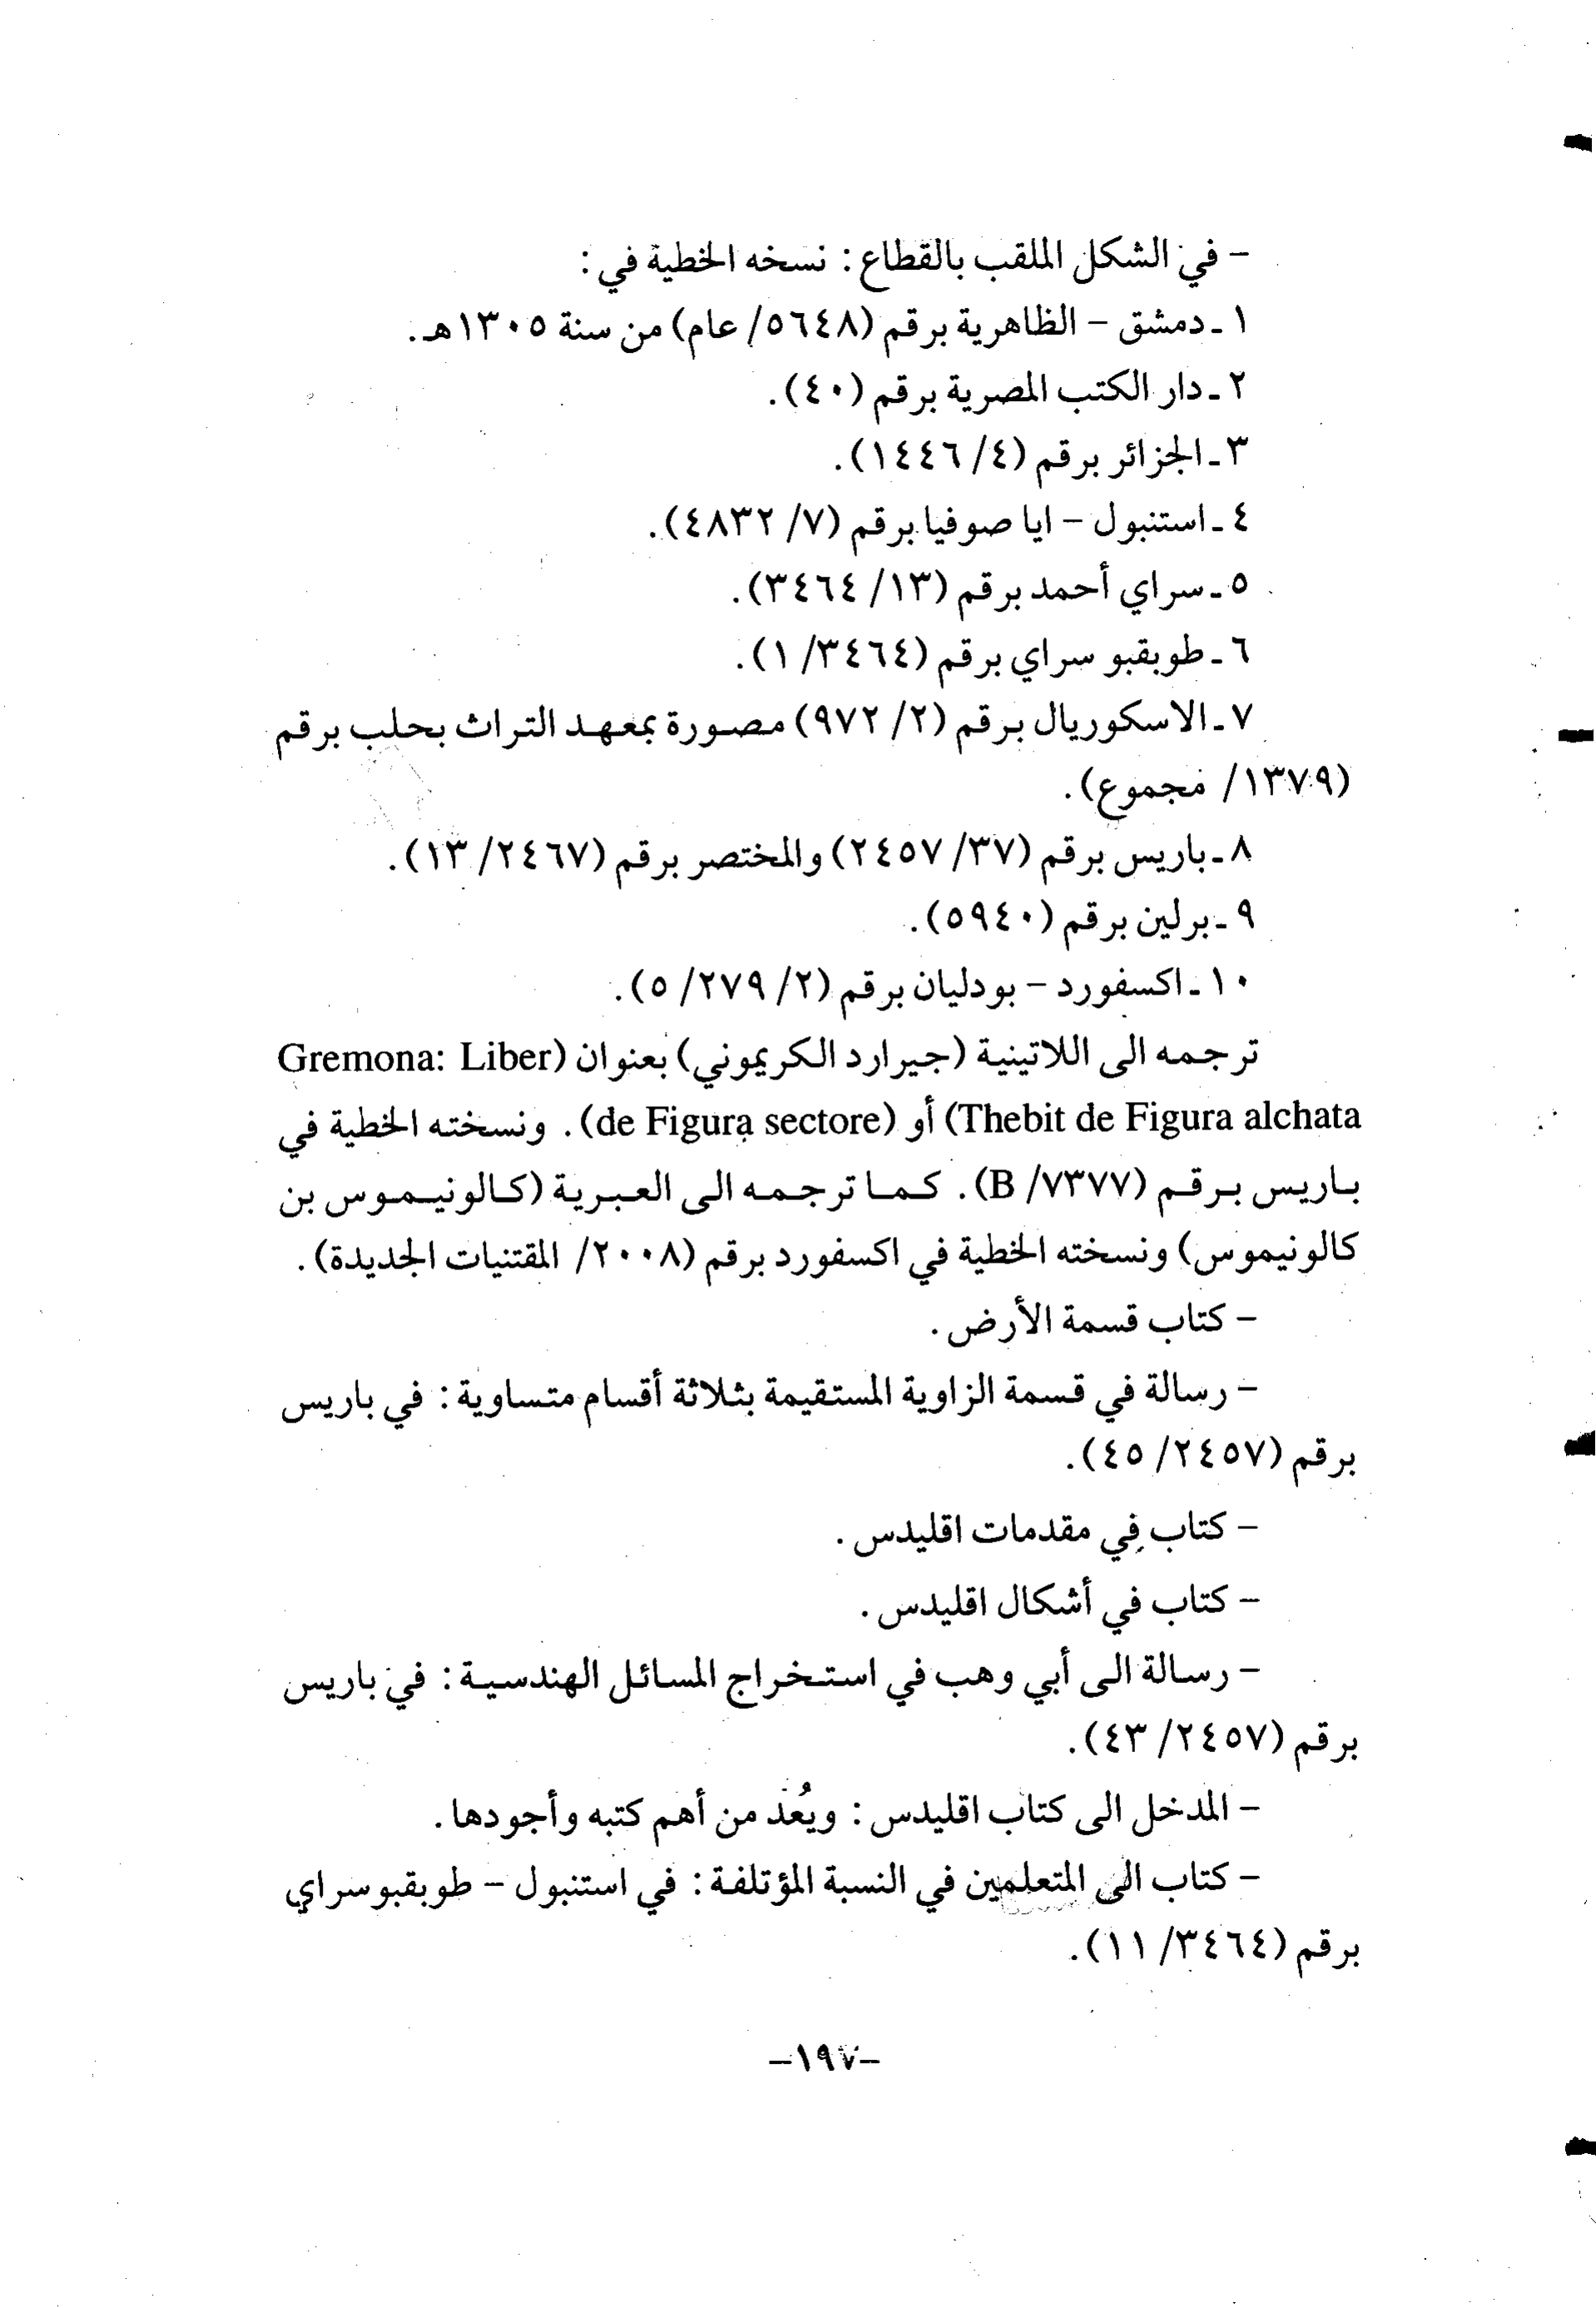 – في الشكل الملقب بالقطاع: نسخه الخطية في:
١ ـ دمشق – الظاهرية برقم (٥٦٤٨/ عام) من سنة ١٣٠٥هـ.
٢ ـ دار الكتب المصرية برقم (٤٠).
٣ ـ الجزائر برقم (٤/ ١٤٤٦).
٤ ـ استنبول – ايا صوفيا برقم (٧/ ٤٨٣٢).
٥ ـ سراي أحمد برقم (١٣/ ٣٤٦٤).
٦ ـ طوبقبو سراي برقم (٣٤٦٤/ ١).
٧ ـ الاسكوريال برقم (٢/ ٩٧٢) مصورة بمعهد التراث بحلب برقم
(١٣٧٩/ مجموع).
٨ ـ باريس برقم (٣٧/ ٢٤٥٧) والمختصر برقم (٢٤٦٧/ ١٣).
٩ ـ برلين برقم (٥٩٤٠).
١٠ ـ اكسفورد – بودليان برقم (٢/ ٢٧٩/ ٥).
ترجمه الى اللاتينية (جيرارد الكريموني) بعنوان (Gremona: Liber
Thebit de Figura alchata) أو (de Figura sectore). ونسخته الخطية في
باريس برقم (٧٣٧٧/ B). كما ترجمه الى العبرية (كالونيموس بن
كالونيموس) ونسخته الخطية في اكسفورد برقم (٢٠٠٨/ المقتنيات الجديدة).
– كتاب قسمة الأرض.
– رسالة في قسمة الزاوية المستقيمة بثلاثة أقسام متساوية: في باريس
برقم (٢٤٥٧/ ٤٥).
– كتاب في مقدمات اقليدس.
– كتاب في أشكال اقليدس.
– رسالة الى أبي وهب في استخراج المسائل الهندسية: في باريس
برقم (٢٤٥٧/ ٤٣).
– المدخل الى كتاب اقليدس: ويُعد من أهم كتبه وأجودها.
– كتاب الى المتعلمين في النسبة المؤتلفة: في استنبول – طوبقبوسراي
برقم (٣٤٦٤/ ١١).
–١٩٧–